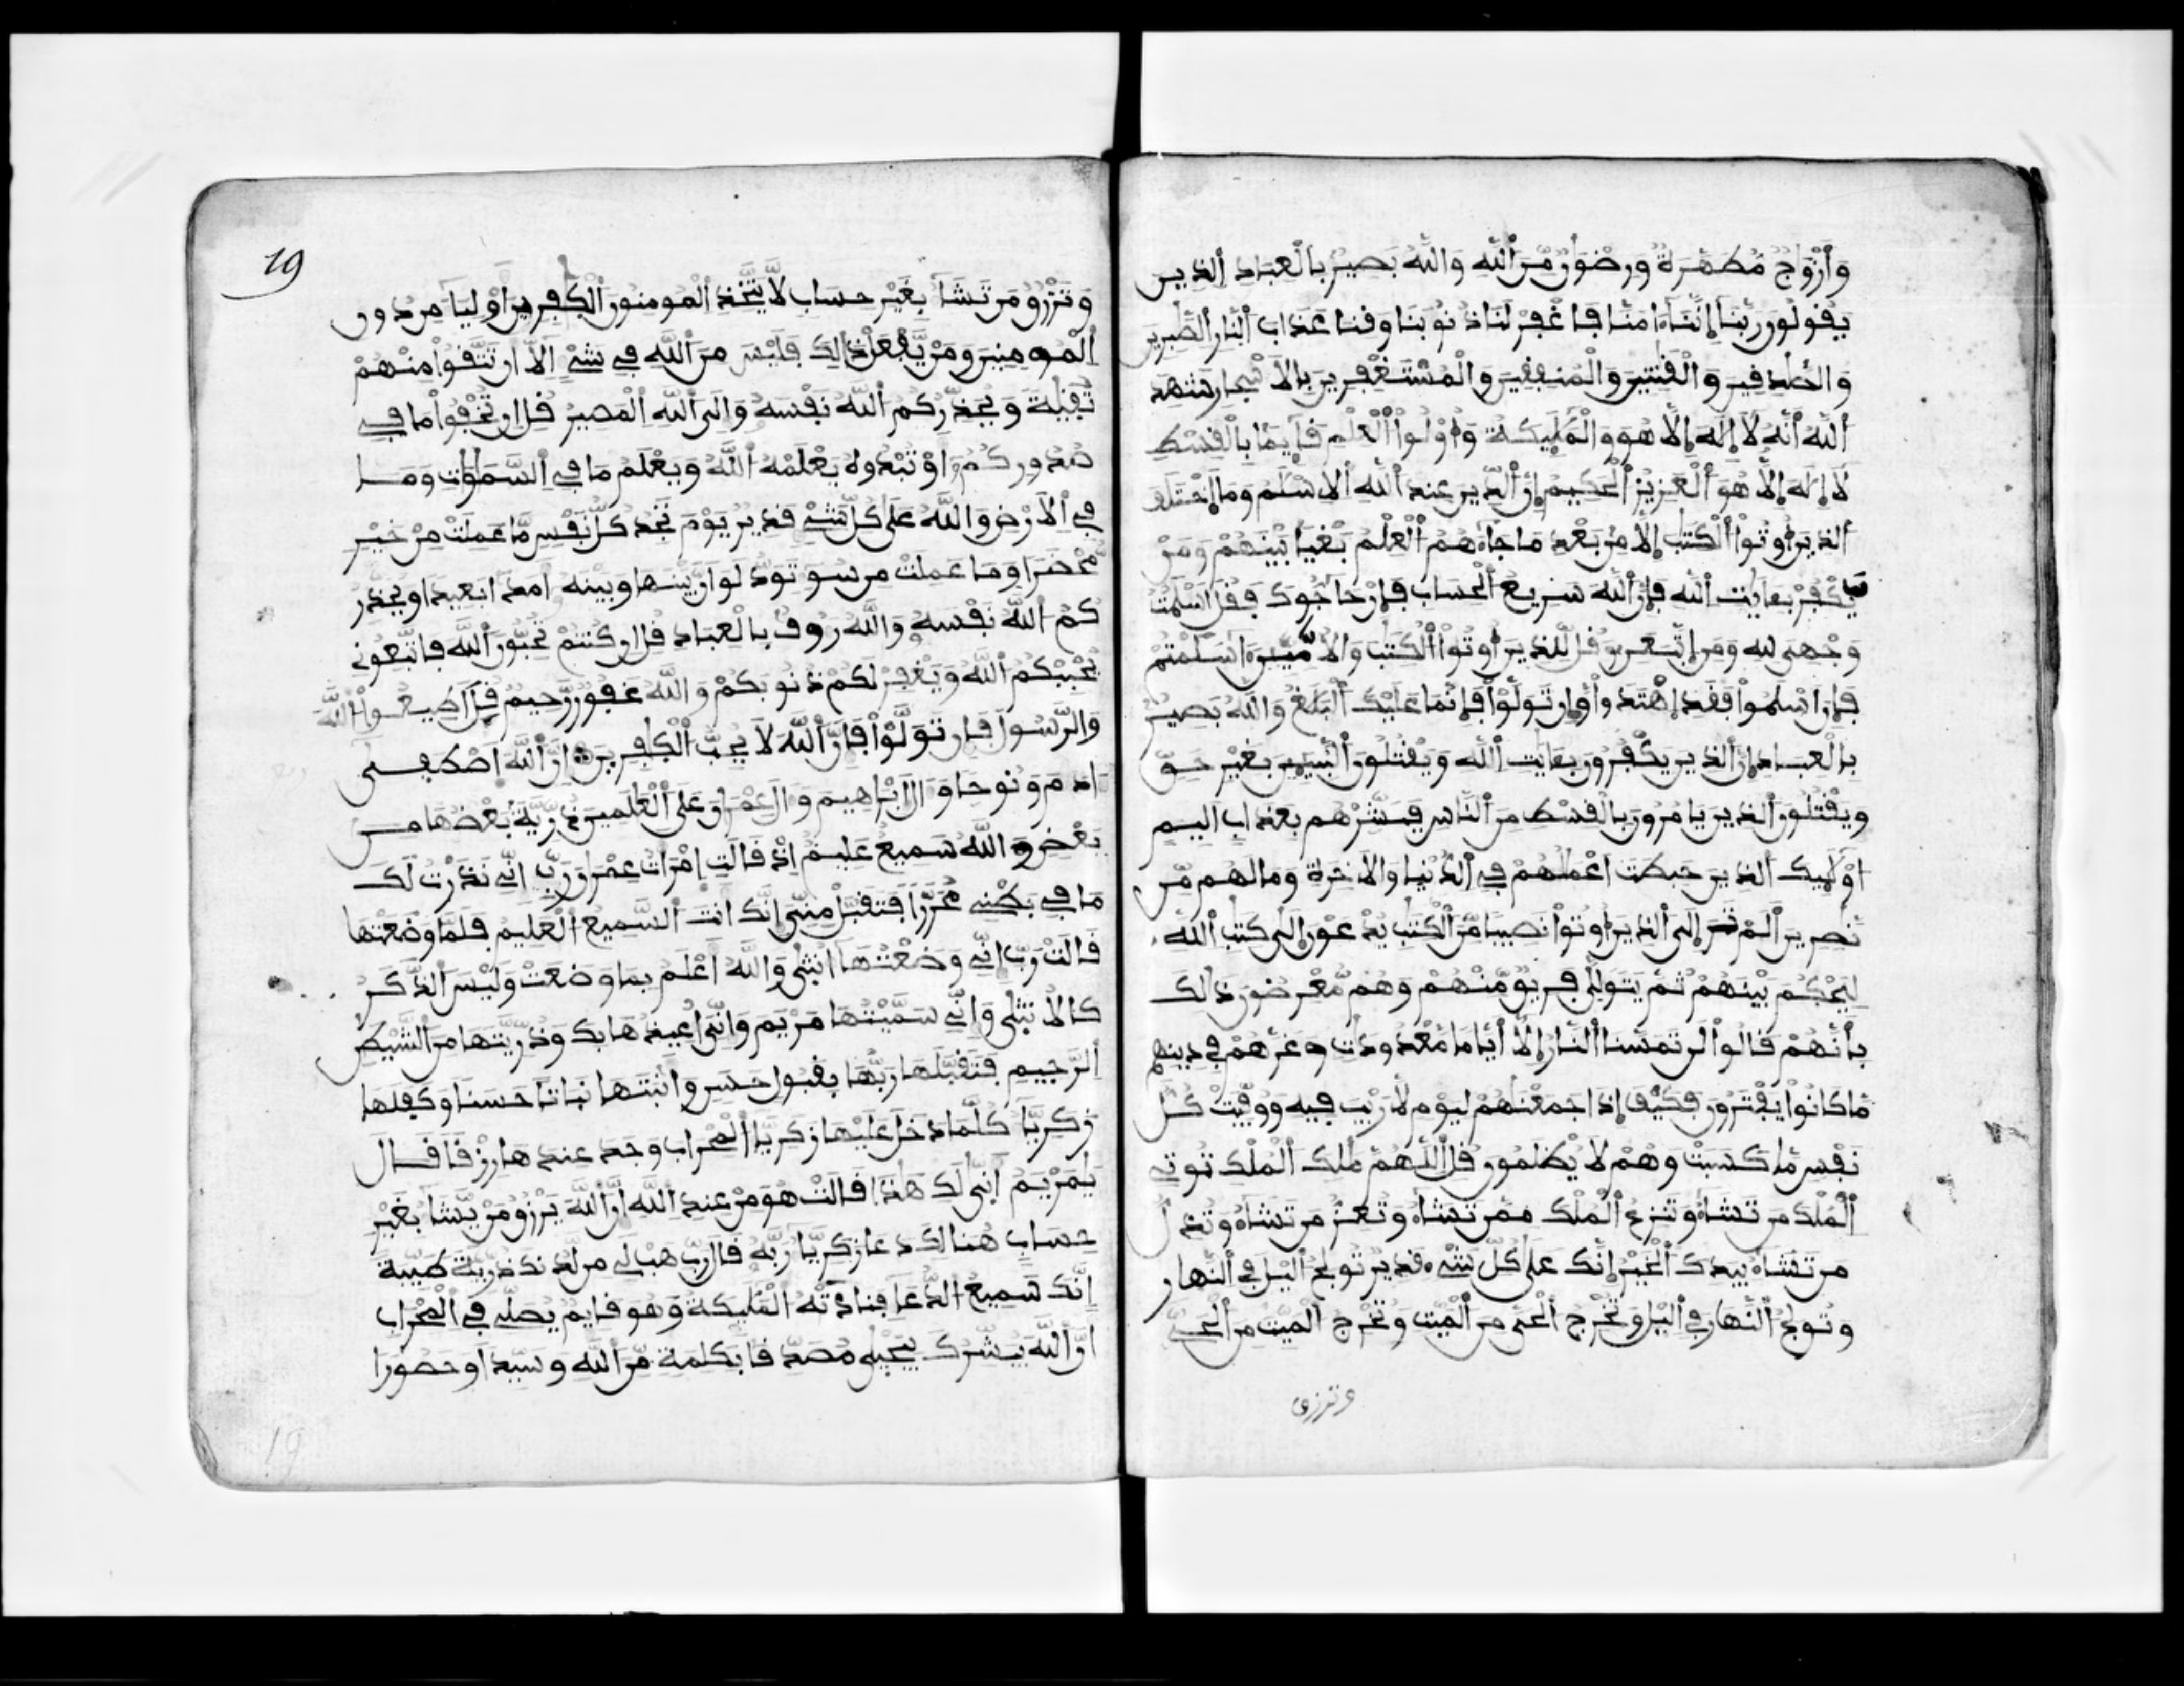 وَأَزْوَاجٌ مُّطَهَّرَةٌ وَرِضْوَانٌ مِّنَ اَللَّهِ وَاللَّهُ بَصِيرٌ بِالْعِبَادِ اِلذِينَ
يَقُولُونَ رَبَّنَا إِنَّنَا ءَامَنَّا فَاغْفِرْ لَنَا ذُنُوبَنَا وَقِنَا عَذَابَ اَلنَّارِ اِلصَّبِرِينَ
وَالصَّدِفِينَ وَالْقَنِتِينَ وَالْمُنفِقِينَ وَالْمُسْتَغْفِرِينَ بِالَاسْحِارِ شَهِدَ
اَللَّهُ أَنَّهُ لَا إِلَهَ إِلَّا هُوَ وَالْمَلَيِكَةُ وَأُوْلُوا اَلْعِلْمِ قَآيِمًا بِالْقِسْطِ
لَا إِلَهَ إِلَّا هُوَ اَلْعَزِيزُ اَلْحَكِيمُ إِنَّ اَلدِّينَ عِندَ اَللَّهِ اِلاسْلَمُ وَمَا اَخْتَلَفَ
اَلذِينَ أُوتُوا اَلْكِتَبَ إِلَّا مِنْ بَعْدِ مَا جَاءَهُمُ اَلْعِلْمُ بَغْيًا بَيْنَهُمْ وَمَنْ
يَّكْفُرْ بِـَٔايَتِ اِللَّهِ فَإِنَّ اَللَّهَ سَرِيعُ اَلْحِسَابِ فَإِنْ حَاجُّوكَ فَقُلَ اَسْلَمْتُ
وَجْهِىَ لِلهِ وَمَنِ اِتَّبَعَنِ وَقُل لِّلذِينَ أُوتُوا اَلْكِتَبَ وَالاُمِّيِّينَ ءَاسْلَمْتُمْ
فَإِنَ اَسْلَمُوا فَقَدِ اِهْتَدَوا وَّإِن تَوَلَّوْا فَإِنَّمَا عَلَيْكَ اَلْبَلَغُ وَاللَّهُ بَصِيرٌ
بِالْعِبَادِ إِنَّ اَلذِينَ يَكْفُرُونَ بِـَٔايَتِ اِللَّهِ وَيَقْتُلُونَ اَلنَّبِيـِٕينَ بِغَيْرِ حَقٍّ
وَيَقْتُلُونَ اَلذِينَ يَامُرُونَ بِالْقِسْطِ مِنَ اَلنَّاسِ فَبَشِّرْهُم بِعَذَابٍ اَلِيمٍ
اوْلَيِكَ اَلذِينَ حَبِطَتَ اَعْمَلُهُمْ فِي اِلدُّنْيَا وَالَاخِرَةِ وَمَا لَهُم مِّن
نَّصِرِينَ أَلَمْ تَرَ إِلَى اَلذِينَ أُوتُوا نَصِيبًا مِّنَ اَلْكِتَبِ يُدْعَوْنَ إِلَى كِتَبِ اِللَّهِ
لِيَحْكُمَ بَيْنَهُمْ ثُمَّ يَتَوَلَّى فَرِيقٌ مِّنْهُمْ وَهُم مُّعْرِضُونَ ذَالِكَ
بِأَنَّهُمْ قَالُوا لَن تَمَسَّنَا اَلنَّارُ إِلَّا أَيَّامًا مَّعْدُودَتٍ وَغَرَّهُمْ فِي دِينِهِم
مَّا كَانُوا يَفْتَرُونَ فَكَيْفَ إِذَا جَمَعْنَهُمْ لِيَوْمٍ لَّا رَيْبَ فِيهِ وَوُفِّيَتْ كُلُّ
نَفْسٍ مَّا كَسَبَتْ وَهُمْ لَا يُظْلَمُونَ قُلِ اِللَّهُمَّ مَلِكَ اَلْمُلْكِ تُوتِي
اِلْمُلْكَ مَن تَشَاءُ وَتَنزِعُ اَلْمُلْكَ مِمَّن تَشَاءُ وَتُعِزُّ مَن تَشَاءُ وَتُذِلُّ
مَن تَشَاءُ بِيَدِكَ اَلْخَيْرُ إِنَّكَ عَلَى كُلِّ شَيْءٍ قَدِيرٌ تُولِجُ اَليْلَ فِي اِلنَّهَارِ
وَتُولِجُ اَلنَّهَارَ فِي اِليْلِ وَتُخْرِجُ اَلْحَىَّ مِنَ اَلْمَيِّتِ وَتُخْرِجُ اَلْمَيِّتَ مِنَ اَلْحَيِّ
وترزق
19
وَتَرْزُقُ مَن تَشَاءُ بِغَيْرِ حِسَابٍ لَّا يَتَّخِذِ اِلْمُومِنُونَ اَلْكَفِرِينَ أَوْلِيَا مِن دُونِ
اِلْمُومِنِينَ وَمَنْ يَّفْعَلْ ذَالِكَ فَلَيْسَ مِنَ اَللَّهِ فِي شَيْءٍ اِلَّا أَن تَتَّقُوا مِنْهُمْ
تُقَيةً وَيُحَذِّرُكُمُ اَللَّهُ نَفْسَهُ وَإِلَى اَللَّهِ اِلْمَصِيرُ قُلِ ان تُخْفُوا مَا فِي
صُدُورِكُمُ أَوْ تُبْدُوهُ يَعْلَمْهُ اَللَّهُ وَيَعْلَمُ مَا فِي اِلسَّمَوَتِ وَمَا
فِي اِلَارْضِ وَاللَّهُ عَلَى كُلِّ شَيْءٍ قَدِيرٌ يَوْمَ تَجِدُ كُلُّ نَفْسٍ مَّا عَمِلَتْ مِنْ خَيْرٍ
مُّحْضَرًا وَمَا عَمِلَتْ مِن سُو تَوَدُّ لَوَ اَنَّ بَيْنَهَا وَبَيْنَهُ أَمَدًا بَعِيدًا وَيُحَذِّرُ
كُمُ اَللَّهُ نَفْسَهُ وَاللَّهُ رَوفٌ بِالْعِبَادِ قُلِ ان كُنتُمْ تُحِبُّونَ اَللَّهَ فَاتَّبِعُونِي
يُحْبِبْكُمُ اَللَّهُ وَيَغْفِرْ لَكُمْ ذُنُوبَكُمْ وَاللَّهُ غَفُورٌ رَّحِيمٌ قُلَ اَطِيعُوا اَللَّهَ
وَالرَّسُولَ فَإِن تَوَلَّوْا فَإِنَّ اَللَّهَ لَا يُحِبُّ اَلْكَفِرِينَ إِنَّ اَللَّهَ اَصْطَفَى
ادَمَ وَنُوحًا وَالَ اِبْرَاهِيمَ وَالَ عِمْرَانَ عَلَى اَلْعَلَمِينَ ذُرِّيَّةً بَعْضُهَا مِن
بَعْضٍ وَاللَّهُ سَمِيعٌ عَلِيمٌ اِذْ قَالَتِ اِمْرَاتُ عِمْرَنَ رَبِّ انِّي نَذَرْتُ لَكَ
مَا فِي بَطْنِي مُحَرَّرًا فَتَقَبَّلْ مِنِّي إِنَّكَ أَنتَ اَلسَّمِيعُ اَلْعَلِيمُ فَلَمَّا وَضَعَتْهَا
قَالَتْ رَبِّ انِّي وَضَعْتُهَا انثَى وَاللَّهُ أَعْلَمُ بِمَا وَضَعَتْ وَلَيْسَ اَلذَّكَرُ
كَالاُنثَى وَإِنِّي سَمَّيْتُهَا مَرْيَمَ وَإِنِّي أُعِيذُهَا بِكَ وَذُرِّيَّتَهَا مِنَ اَلشَّيْطَنِ
اِلرَّجِيمِ فَتَقَبَّلَهَا رَبُّهَا بِقَبُولٍ حَسَنٍ وَأَنبَتَهَا نَبَاتًا حَسَنًا وَكَفَلَهَا
زَكَرِيَّا كُلَّمَا دَخَلَ عَلَيْهَا زَكَرِيَّا اَلْمِحْرَابَ وَجَدَ عِندَهَا رِزْقًا قَالَ
يَمَرْيَمُ أَنَّى لَكِ هَذَا قَالَتْ هُوَ مِنْ عِندِ اِللَّهِ إِنَّ اَللَّهَ يَرْزُقُ مَنْ يَّشَا بِغَيْرِ
حِسَابٍ هُنَالِكَ دَعَا زَكَرِيَّا رَبَّهُ قَالَ رَبِّ هَبْ لِي مِن لَّدُنكَ ذُرِّيَّةً طَيِّبَةً
إِنَّكَ سَمِيعُ اُلدُّعَا فَنَادَتْهُ اُلْمَلَيِكَةُ وَهُوَ قَايِمٌ يُصَلِّي فِي اِلْمِحْرَابِ
أَنَّ اَللَّهَ يُبَشِّرُكَ بِيَحْيَى مُصَدِّقًا بِكَلِمَةٍ مِّنَ اَللَّهِ وَسَيِّدًا وَحَصُورًا
19